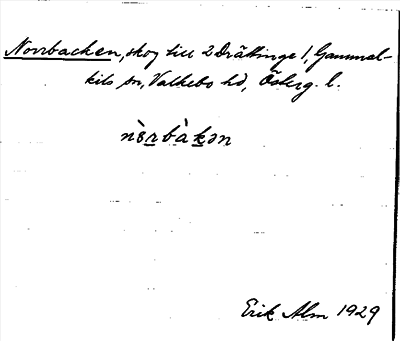 Norrbacken, skog till 2 Drättinge 1, Gammal-
kils sn, Valkebo hd, Österg. l.
nɵ̀rbàkən
Erik Alm 1929